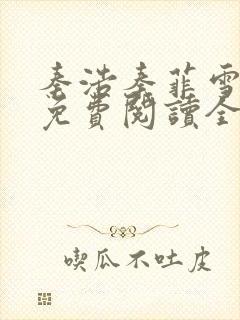 秦浩秦菲雪
免費閱讀全
喫瓜不吐皮